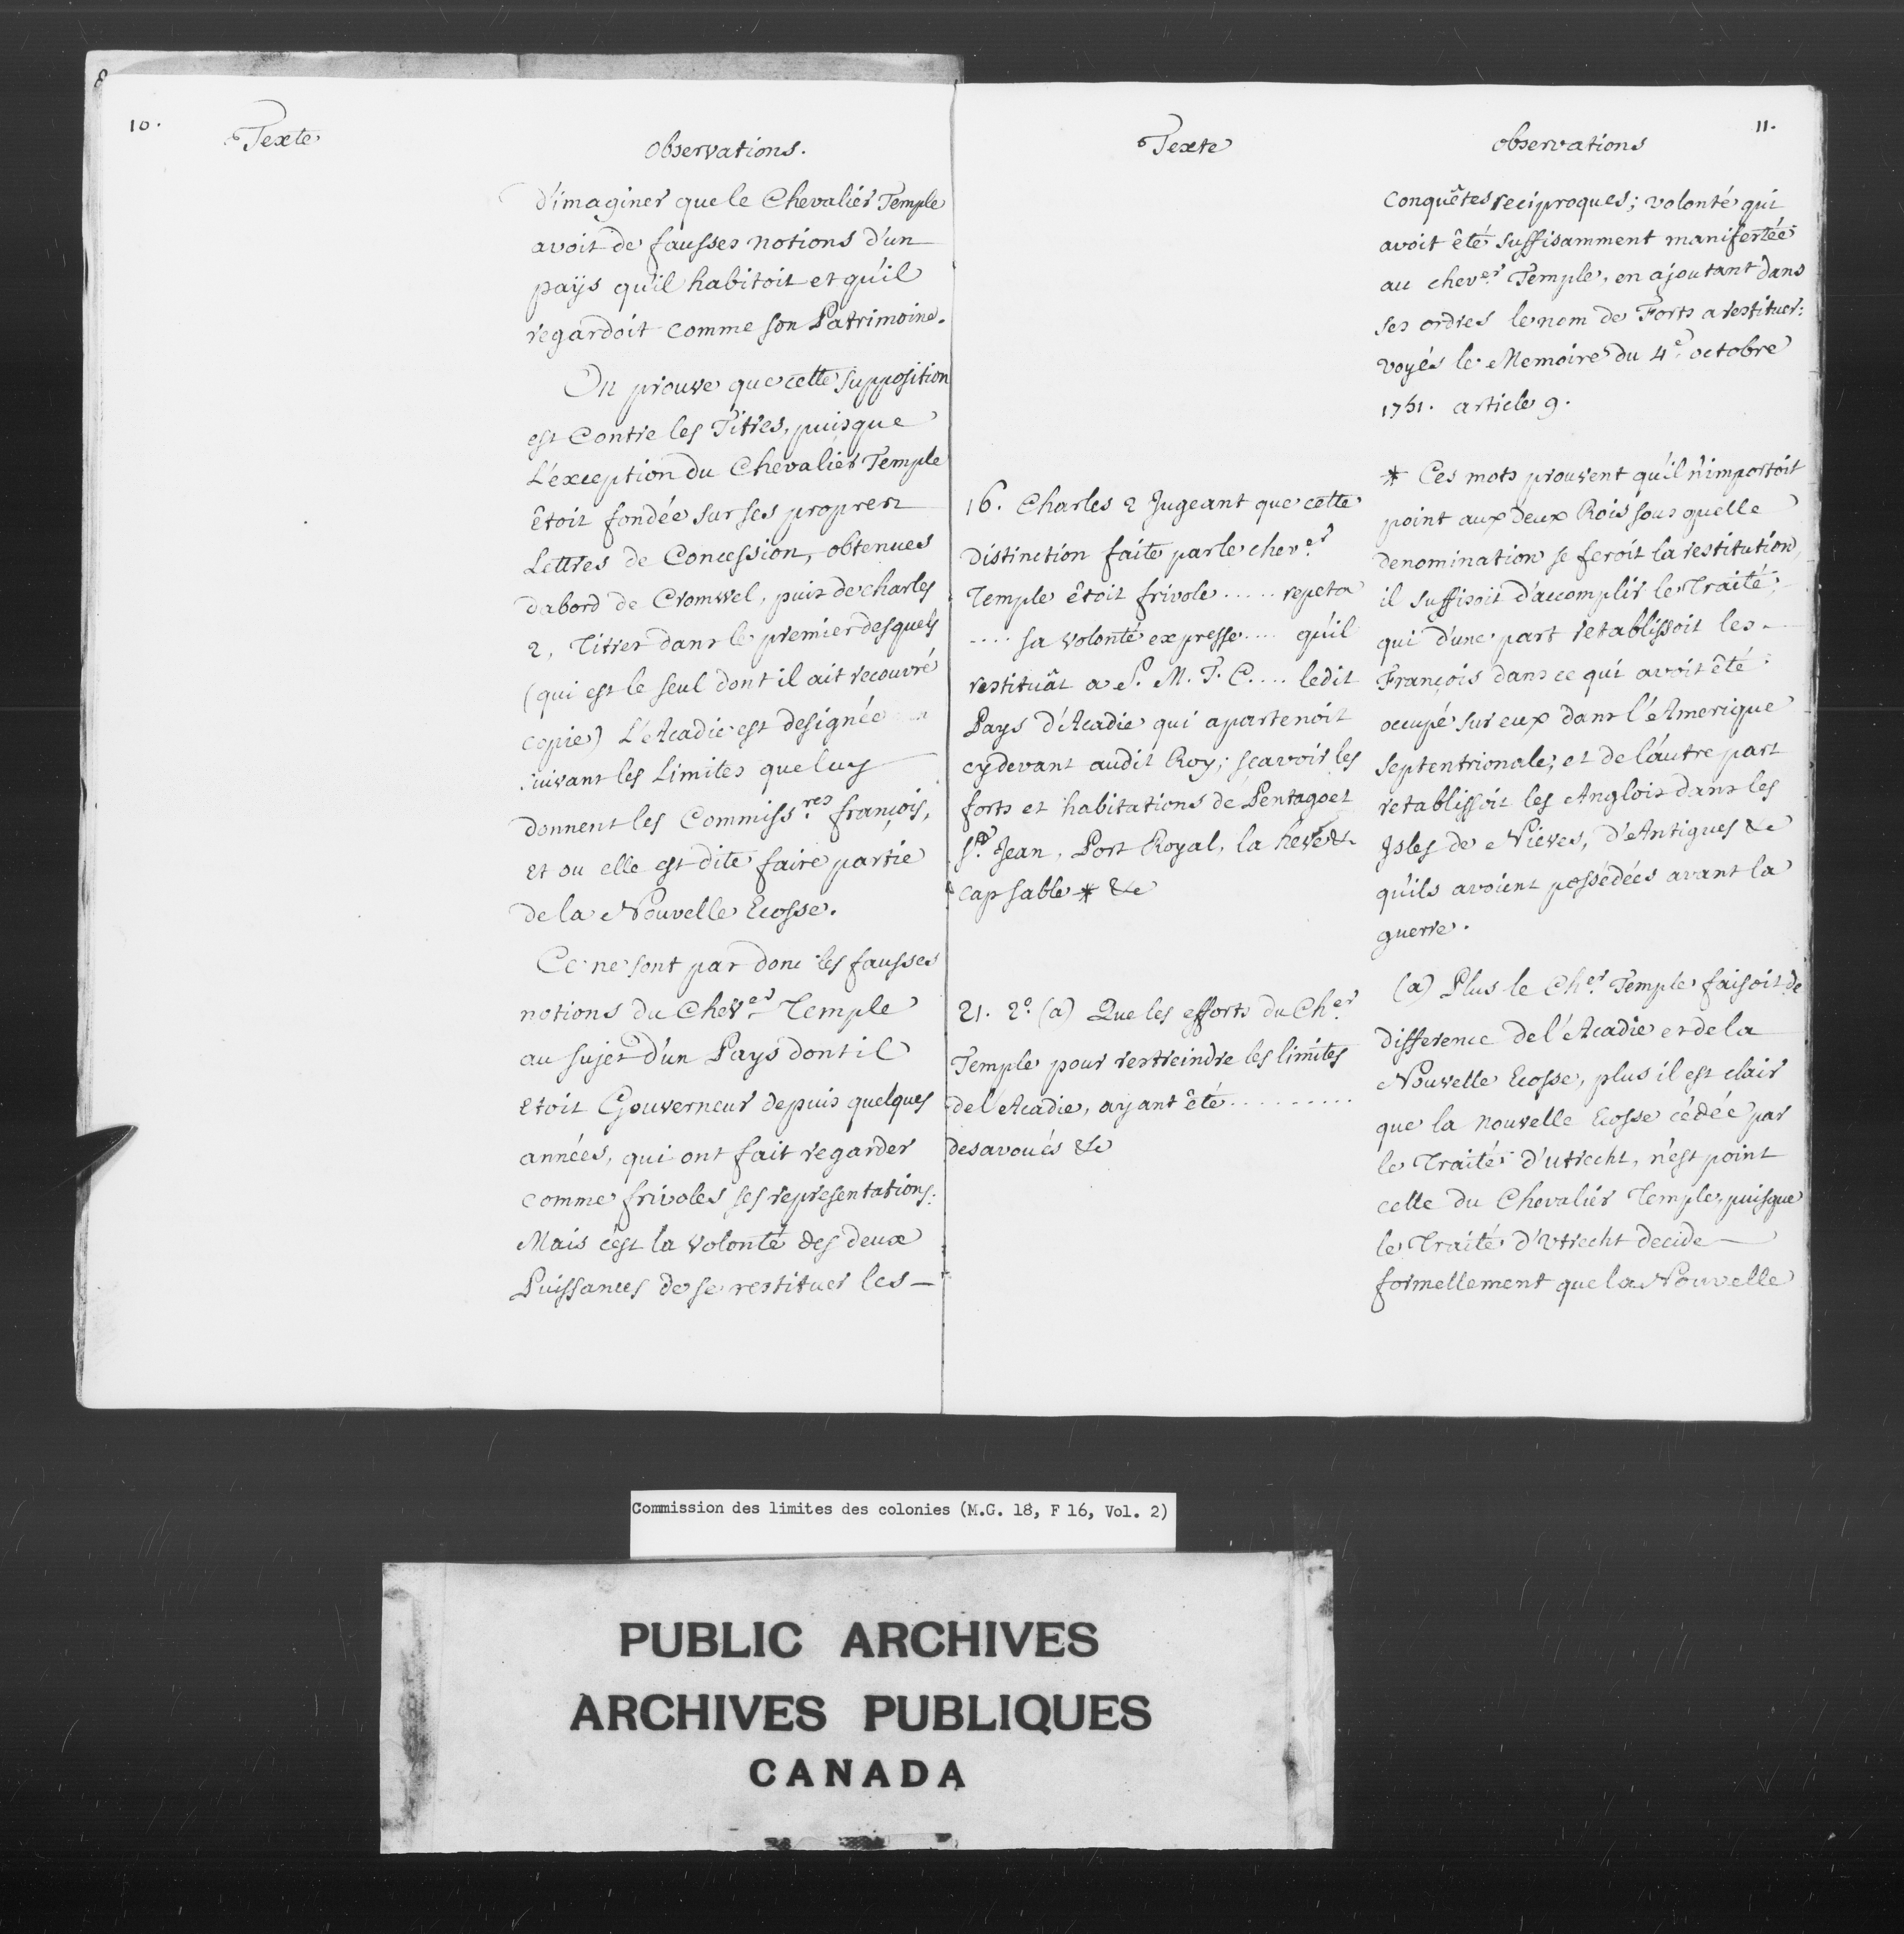 10.
Texte
Observations.
D'imaginer que le Chevalier Temple
avoit de fausses notions d'un
païs qu'il habitoit et qu'il
regardoit comme son Patrimoine.
On prouve que cette supposition
est Contre les Titres, puisque
L'éxception du Chevalier Temple
êtoit fondée sur ses propres
Lettres de Concession, obtenues
dabord de Cromwel, puis de charles
2, Titres dans le premier desquels
(qui est le seul dont il ait recouvré
copie) L'Acadie est designée
suivant les Limites que luy
donnent les Commiss.res françois,
et ou elle est dite faire partie
de la Nouvelle Ecosse.
Ce ne sont pas donc les fausses
notions du Chev.er Temple
au sujet d'un Pays dont il
etoit Gouverneur depuis quelques
années, qui ont fait regarder
comme frivoles ses representations.
Mais c'est la volonté des deux
Puissances de se restituer les
Texte
16. Charles 2 Jugeant que cette
distinction faite par le chev.er
Temple êtoit frivole ..... repeta
.... sa volonté expresse .... qu'il
restituât a S. M. T. C. .... ledit
Pays d'Acadie qui apartenoit
cydevant audit Roy; scavoir les
forts et habitations de Pentagoet
St. Jean, Port Royal, la heve &
cap sable * &c
21. 2º. (a) Que les efforts du Ch.er
Temple pour restreindre les limites
de l'Acadie, ayant êté ..........
desavoués &c
11.
observations
conquêtes reciproques; volonté qui
avoit êté suffisamment manifestée
au chev.er Temple, en ajoutant dans
ses ordres le nom de Forts a restituer:
voyés le Memoire du 4e. octobre
1751. article 9.
* Ces mots prouvent qu'il n'importoit
point aux deux Rois sous quelle
denomination se feroit la restitution,
il suffisoit d'accomplir le Traité;
qui d'une part retablissoit les
François dans ce qui avoit êté
occupé sur eux dans l'Amerique
septentrionale; et de l'autre part
retablissoit les Anglois dans les
Isles de Nieves, d'Antigues &c
qu'ils avoient possédées avant la
guerre.
(a) Plus le Ch.er Temple faisoit de
difference de l'Acadie et de la
Nouvelle Ecosse, plus il est clair
que la nouvelle Ecosse cédée par
le Traité d'utrecht, n'est point
celle du Chevalier Temple, puisque
le Traité d'Utrecht decide
formellement que la Nouvelle
Commission des limites des colonies (M.G. 18, F 16, Vol. 2)
PUBLIC ARCHIVES
ARCHIVES PUBLIQUES
CANADA